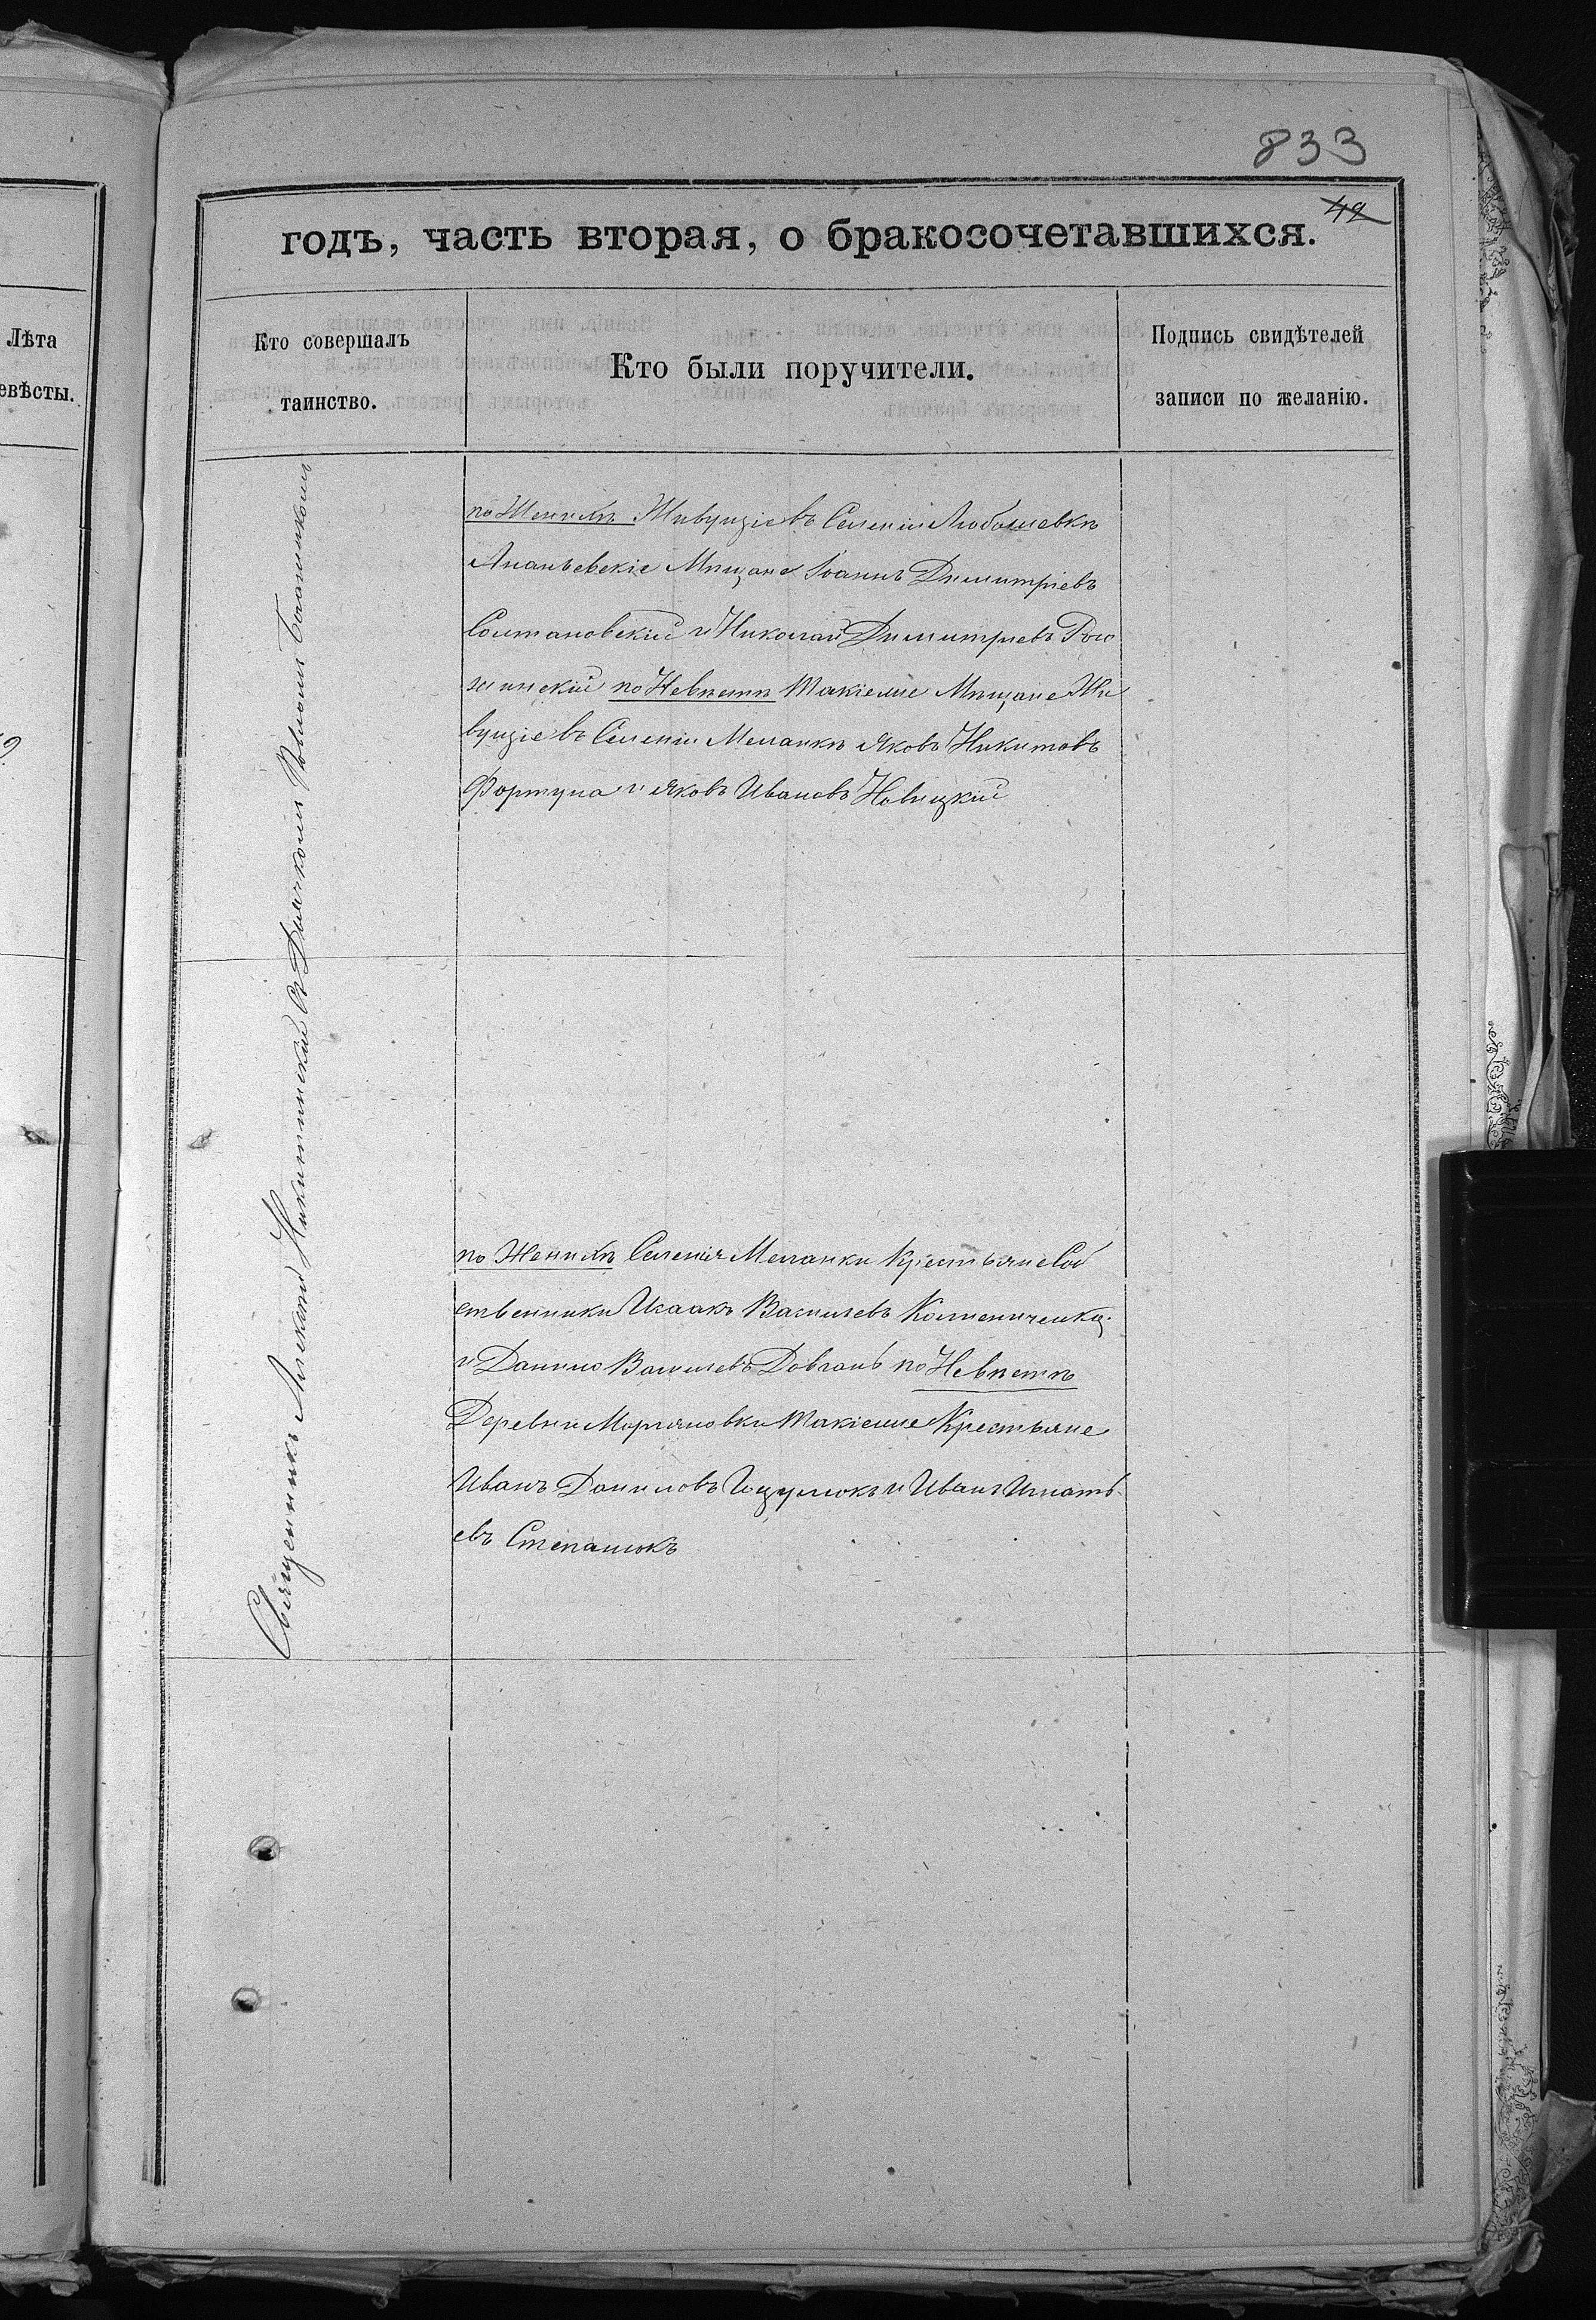 833
42
годъ, часть вторая, о бракосочетавшихся.
Лѣта
евѣсты.
Кто совершалъ
таинство.
Кто были поручители.
Подпись свидѣтелей
записи по желанію.
Священникъ Алексѣй Никитинскій съ Дьячкомъ
по Женихѣ Живущіе въ Селеніи Любашевкѣ
Ананьевскіе Мѣщане Іоаннъ Димитріевъ
Солтановскій и Николай Димитріевъ
по Невѣстѣ Такіеже Мѣщане Жи
вущіе въ Селеніи Меланкѣ Яковъ Никитовъ
Фортуна и Яковъ Ивановъ Новицкій
по Женихѣ Селенія Меланки Крестьяне Соб
ственники Исаакъ Васильевъ
и Данило Васильевъ Довгань по Невѣстѣ
Деревни Марьяновки Такіеже Крестьяне
Иванъ Даниловъ и Иванъ Игнать
евъ Степанюкъ